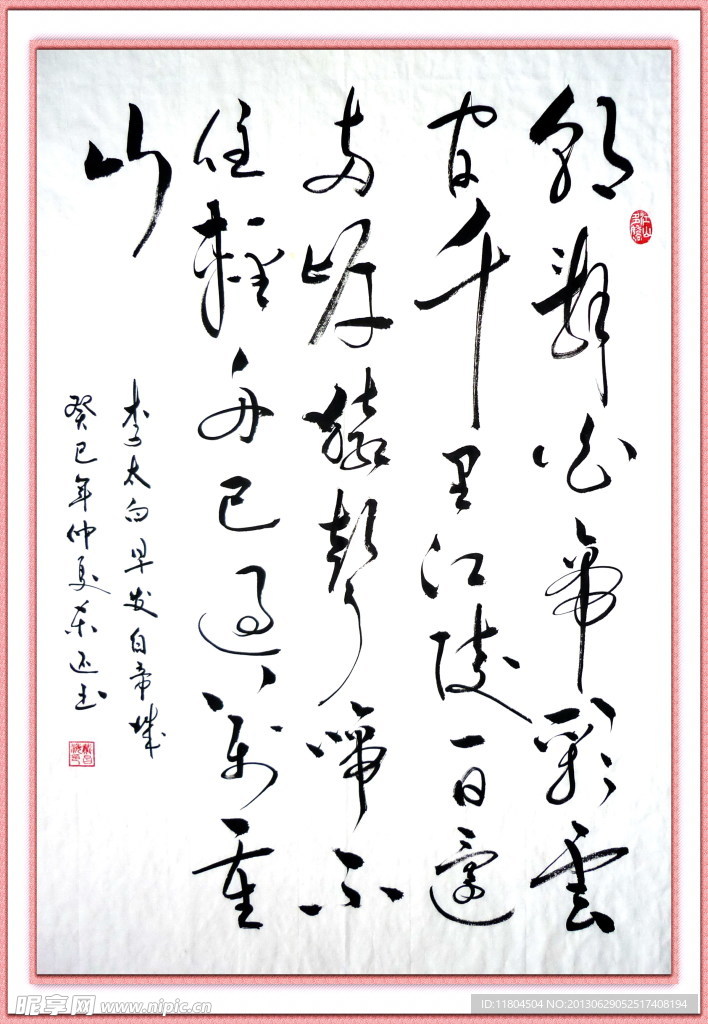 朝辭白帝彩雲
间千里江陵一日還
两岸猿聲啼不
住輕舟已過萬重
山
李太白早发白帝城
癸巳年仲夏书
江山多娇
昵享网 www.nipic.cn
ID:11804504 NO:20130629052517408194